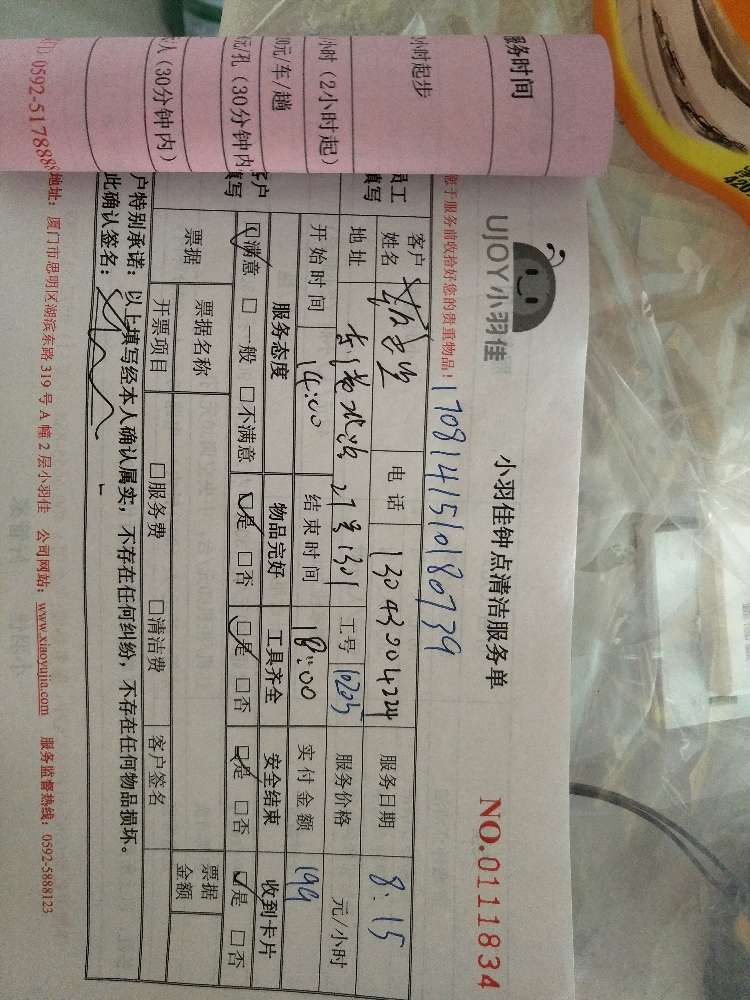 服务时间
小时起步
小时（2小时起）
0元/车/趟
元/孔（30分钟内
人（30分钟内）
0592-517888
UJOY小羽佳
小羽佳钟点清洁服务单
NO.0111834
您于服务前收拾好您的贵重物品！
1708141510180739
员工
填写
客户
姓名
电话
13043204224
服务日期
8.15
地址
27号1301
工号
服务价格
元/小时
开始时间
14:00
结束时间
18:00
实付金额
199
客户
填写
服务态度
物品完好
工具齐全
安全结束
收到卡片
☑满意 □一般 □不满意
☑是 □否
☑是 □否
☑是 □否
☑是 □否
票据
票据名称
票据
金额
开票项目
□服务费 □清洁费
客户签名
户特别承诺：以上填写经本人确认属实，不存在任何纠纷，不存在任何物品损坏。
此确认签名：
地址：厦门市思明区湖滨东路 319 号 A 幢 2 层小羽佳 公司网站：www.xiaoyujia.com 服务监督热线：0592-5888123